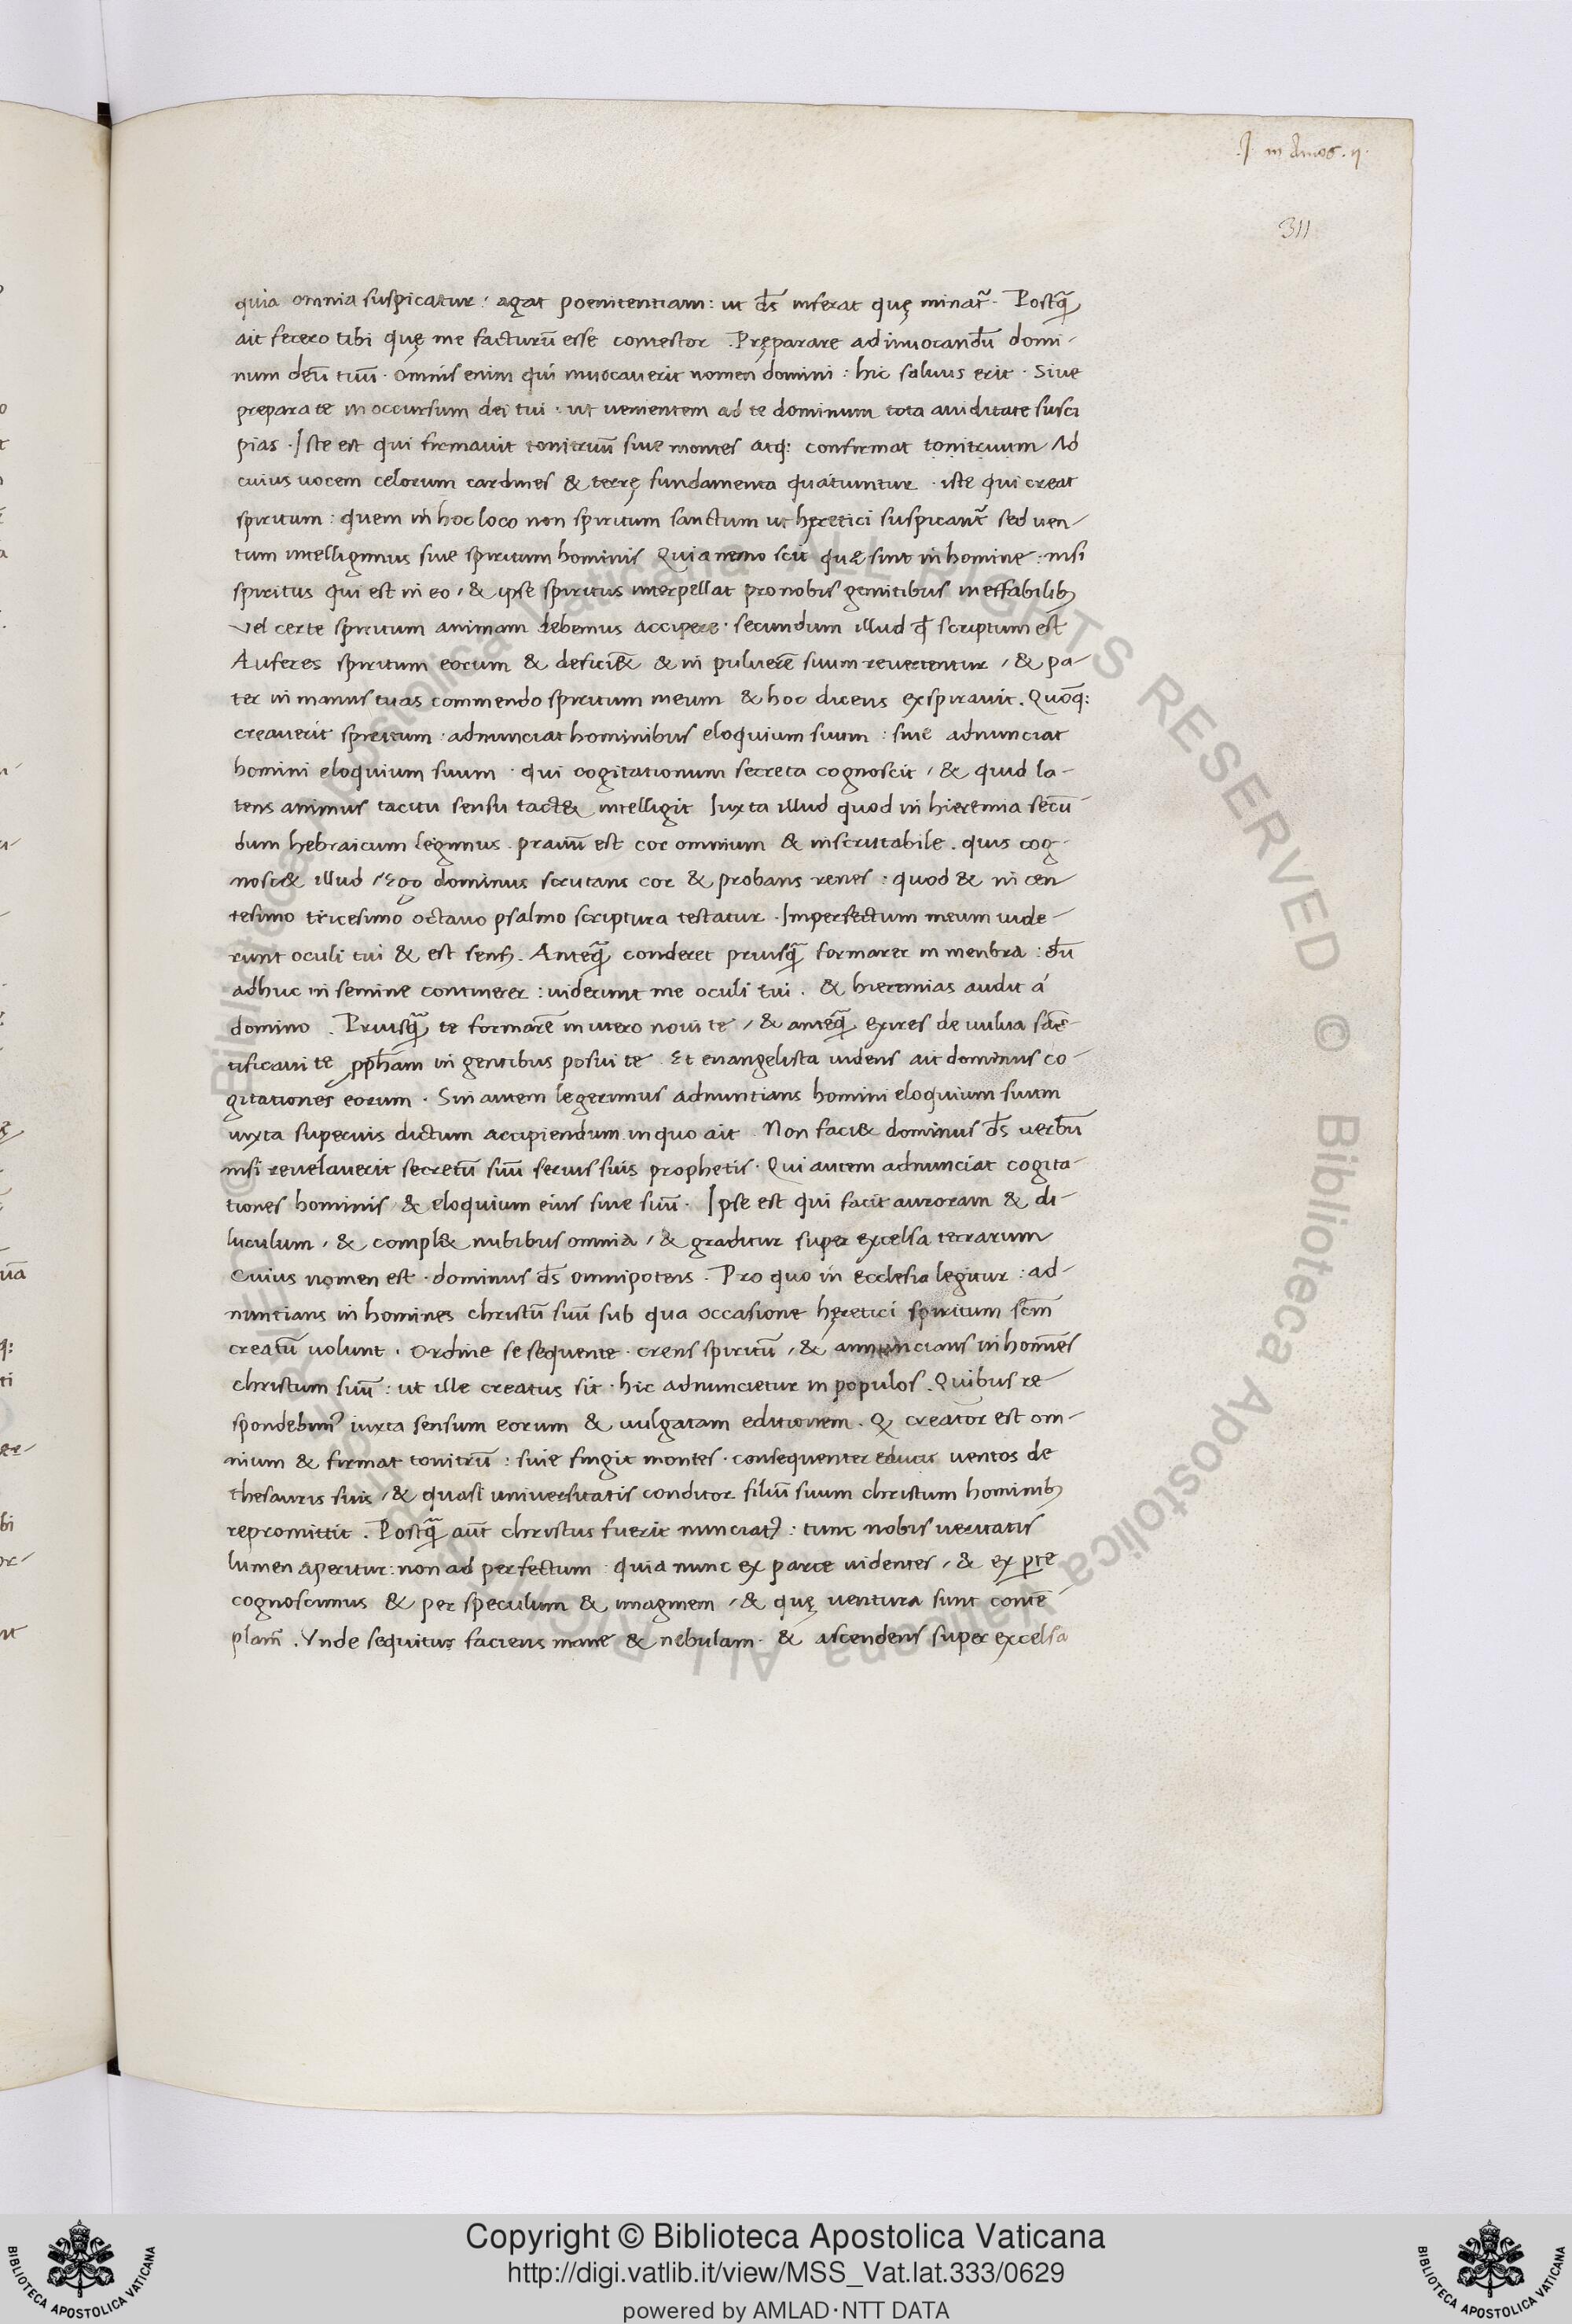 .J. in Amos. ij.
311
quia omnia suspicatur: agat poenitentiam: ut d̄s inferat quę minat᷑. Postꝗ̄
ait fecero tibi quę me facturū esse contestor. Pręparare ad inuocandū domi-
num deū tuū. omnis enim qui inuocauerit nomen domini: hic saluus erit. Siue
prepara te in occursum dei tui. ut uenientem ad te dominum tota auiditate susci
pias. Iste est qui firmauit tonitruū siue montes atq: confirmat tonitruum Ad
cuius uocem celorum cardines & terrę fundamenta quatiuntur. iste qui creat
spiritum: quem in hoc loco non spiritum sanctum ut hęretici suspicant᷑ sed uen-
tum intelligimus siue spiritum hominis Quia nemo scit quæ sint in homine: nisi
spiritus qui est in eo, & ipse spiritus interpellat pro nobis gemitibus ineffabilibꝫ
Vel certe spiritum animam debemus accipere. secundum illud qđ scriptum est
Auferes spiritum eorum & deficiēt & in puluerē suum reuertentur, & pa-
ter in manus tuas commendo spiritum meum & hoc dicens exspirauit. Quōq:
creauerit spiritum. adnunciat hominibus eloquium suum: siue adnunciat
homini eloquium suum. qui cogitationum secreta cognoscit, & quid la-
tens animus tacitu sensu tact& intelligit Iuxta illud quod in hieremia secū
dum hebraicum legimus. prauū est cor omnium & inscrutabile. quis cog-
nosc& illud, Ego dominus scrutans cor & probans renes: quod & in cen
tesimo tricesimo octauo psalmo scriptura testatur. Imperfectum meum uide-
runt oculi tui & est sensꝫ. Anteꝗ̄ conderet priusꝗ̄ formarer in menbra: dū
adhuc in semine continerer: uiderunt me oculi tui. & hieremias audit á
domino. Priusꝗ̄ te formarē in utero noui te, & anteꝗ̄ exires de uulua sāc-
tificaui te ꝓph̄am in gentibus posui te. Et euangelista uidens ait dominus co-
gitationes eorum. Sin autem legerimus adnuntians homini eloquium suum
iuxta superius dictum accipiendum in quo ait. Non faci& dominus d̄s uerbū
nisi reuelauerit secretū suū seruis suis prophetis. Qui autem adnunciat cogita-
tiones hominis, & eloquium eius siue suū. Ipse est qui facit auroram & di-
luculum, & compl& nubibus omnia, & graditur super excelsa terrarum
Cuius nomen est. dominus d̄s omnipotens. Pro quo in ecclesia legitur: ad-
nuntians in homines christū suū sub qua occasione hęretici spiritum scm̄
creatū uolunt. Ordine se sequente. crens spiritū, & annuncians in homīes
christum suū: ut ille creatus sit. hic adnuncietur in populos. Quibus re
spondebim᷒ iuxta sensum eorum & uulgatam editionem. Qꝫ creator est om-
nium & firmat tonitrū: siue fingit montes. consequenter educit ventos de
thesauris suis, & quasi universitatis conditor filiū suum christum hominibꝫ
repromittit. Postꝗ̄ aūt christus fuerit nunciatꝰ: tunc nobis ueritatis
lumen aperitur: non ad perfectum quia nunc ex parte uidentes, & ex ꝑte
cognoscimus & per speculum & imaginem, & quę ventura sunt contē
plam̄. Vnde sequitur faciens mane & nebulam. & ascendens super excelsa
Copyright © Biblioteca Apostolica Vaticana
http://digi.vatlib.it/view/MSS_Vat.lat.333/0629
powered by AMLAD·NTT DATA